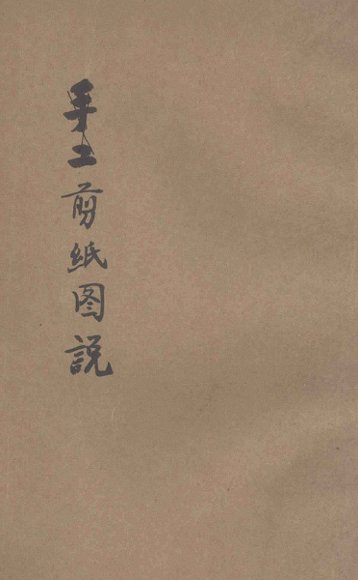 手工剪紙图説